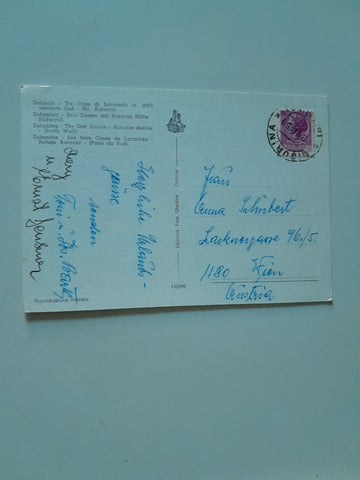 Dolomiti - Tre Cime di Lavaredo m. 3003
versante Sud - Rif. Auronzo
Dolomiten - Drei Zinnen mit Auronzo Hütte
Südwand.
Dolomites - The Drei Zinnen - Auronzo shelter
South Wall.
Dolomites - Les trois Cimes de Lavaredo
Refuge Auronzo - (Paroi du Sud).
Herzliche Urlaubs-
grüße
senden
Toni u.
u.
Riproduzione vietata
12/299
Edizioni Foto Ghedina
Cortina
MISURINA
Frau
Anna Schubert
Lacknergasse 96/5.
1180 Wien
Austria